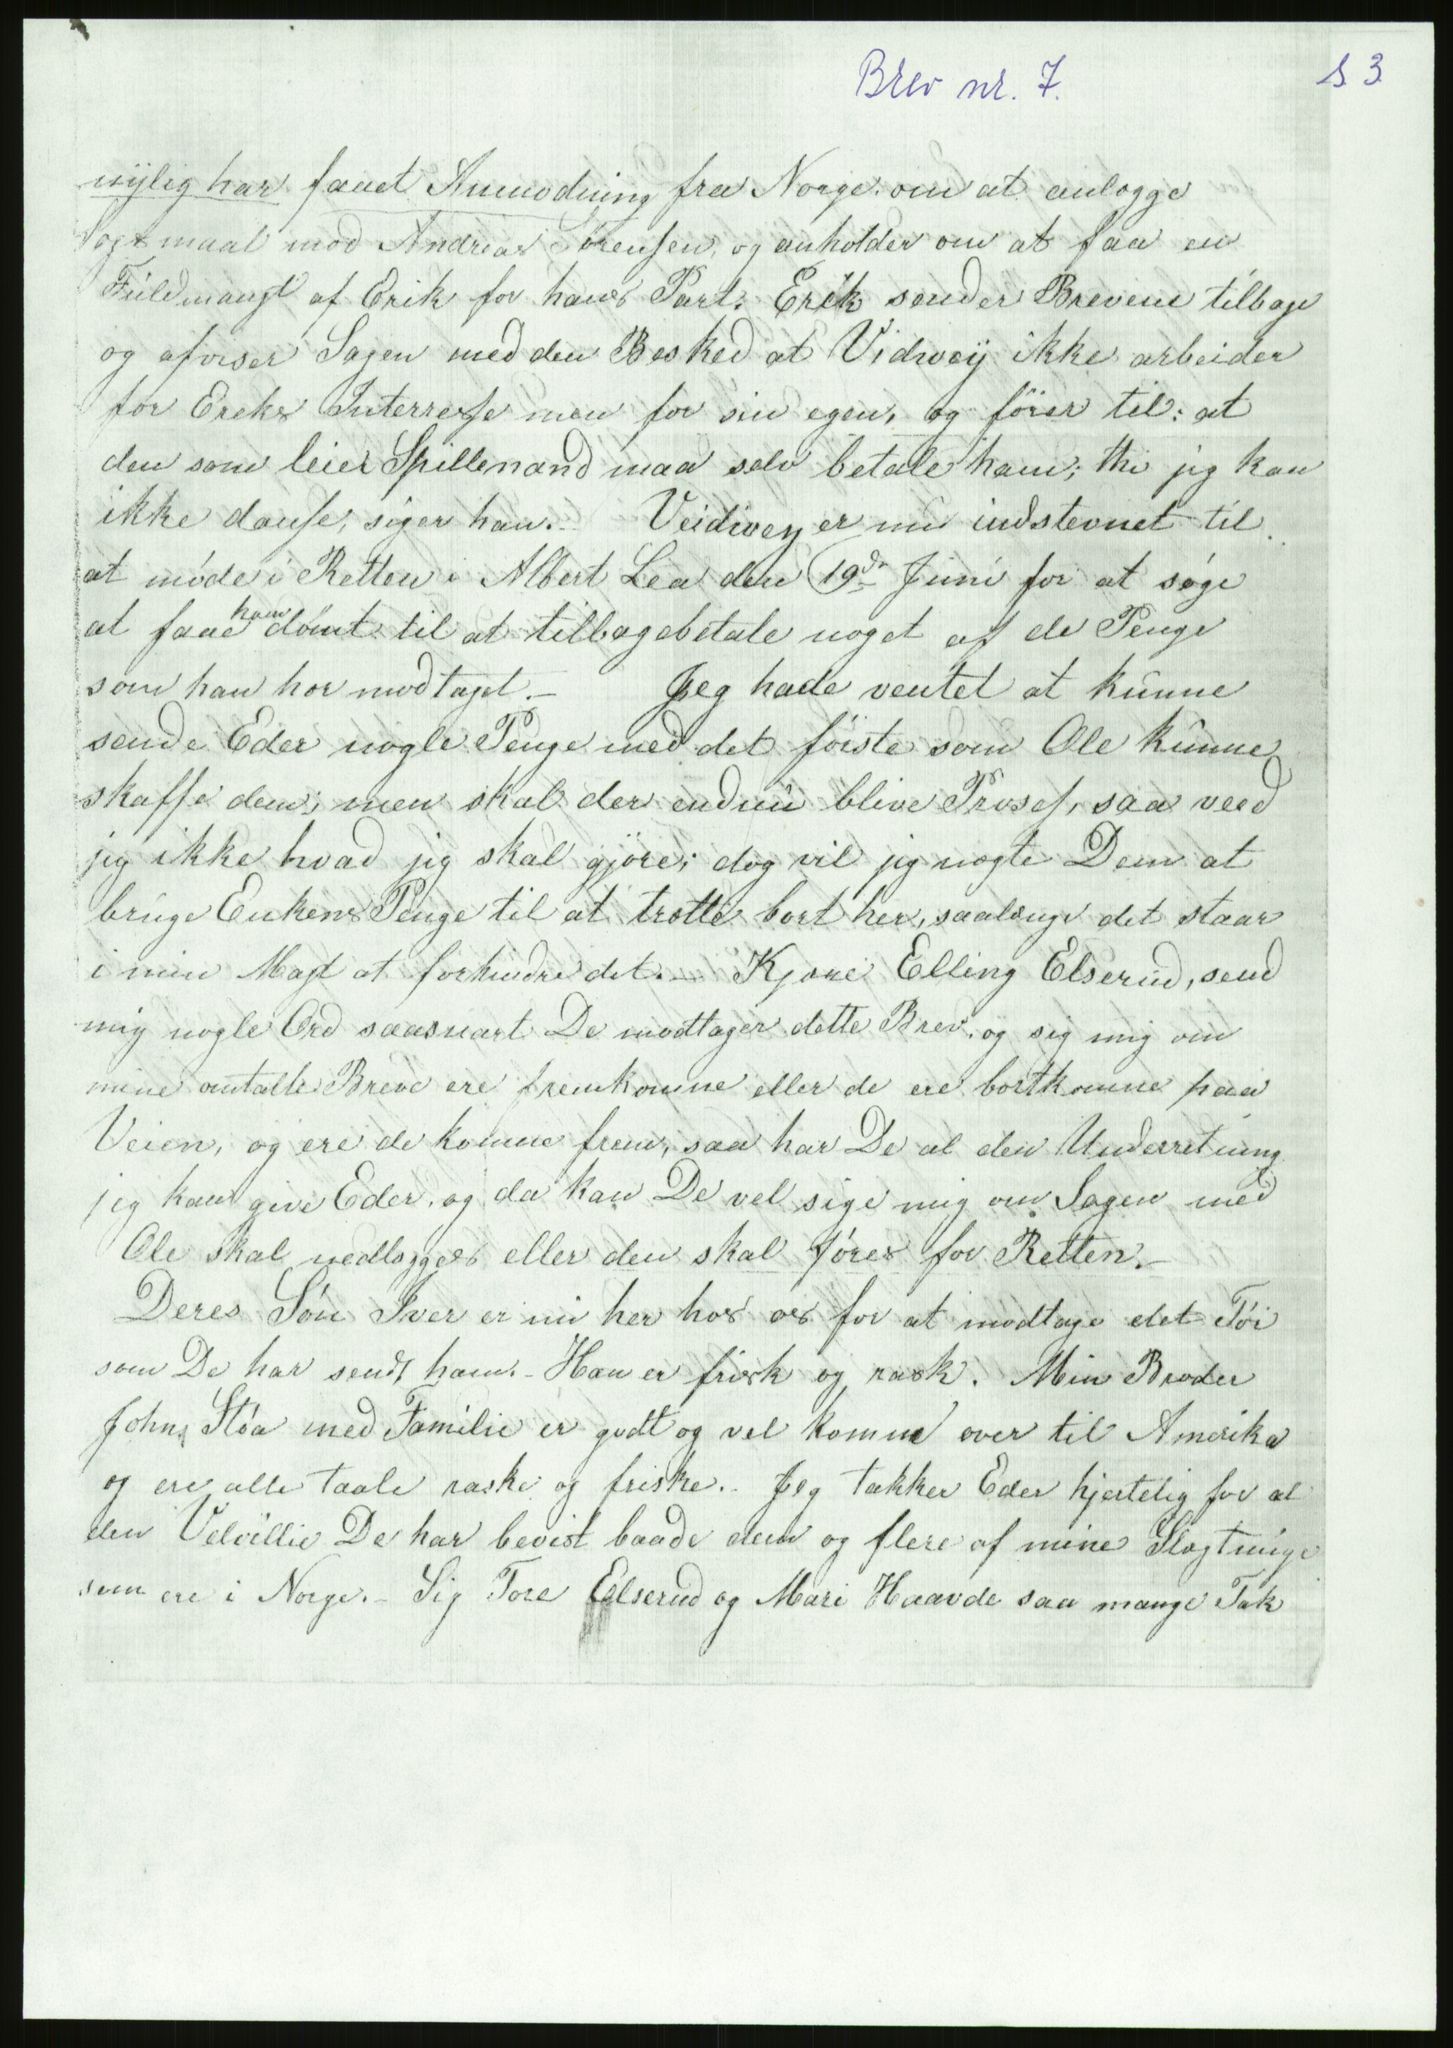 Brev nr. 7.
S 3
nylig har faaet Anmodning fra Norge om at anlægge
Sogsmaal mod Andreas Sörensen, og anholder om at faa en
Fuldmagt af Erik for hans Part. Erik sender Brevene tilbage
og afviser Sagen med den Besked at Vidvey ikke arbeider
for Ereks Interresse men for sin egen, og förer til: at
den som leier Spillemand maa selv betale ham; thi jeg kan
ikke danse, siger han. Veidivey er nu indstevnet til
at möde i Retten i Albert Lea den 19de Juni for at söge
at faae ham dömt til at tilbagebetale noget af de Penge
som han har modtaget. – Jeg hade ventet at kunne
sende Eder nogle Penge med det förste som Ole kunne
skaffe dem; men skal der endnu blive Proses, saa veed
jeg ikke hvad jeg skal gjöre; dog vil jeg nægte Dem at
bruge Enkens Penge til at trætte bort her, saalænge det staar
i min Magt at forhindre det. – Kjære Elling Elserud, send
mig nogle Ord saasnart De modtager dette Brev, og sig mig om
mine omtalte Breve ere fremkomne eller de ere bortkomne paa
Veien, og ere de komne frem, saa har De al den Underretning
jeg kan give Eder, og da kan De vel sige mig om Sagen med
Ole skal nedlægges eller den skal föres for Retten. –
Deres Sön Iver er nu her hos os for at modtage det Töi
som De har sendt ham. – Han er frisk og rask. Min Broder
John Stöa med Familie er godt og vel komne over til Amerika
og ere alle taale raske og friske. – Jeg takker Eder hjertelig for al
den Velvillie De har bevist baade dem og flere af mine Slægtninge
som ere i Norge. – Sig Tore Elserud og Mari Haavde saa mange Tak